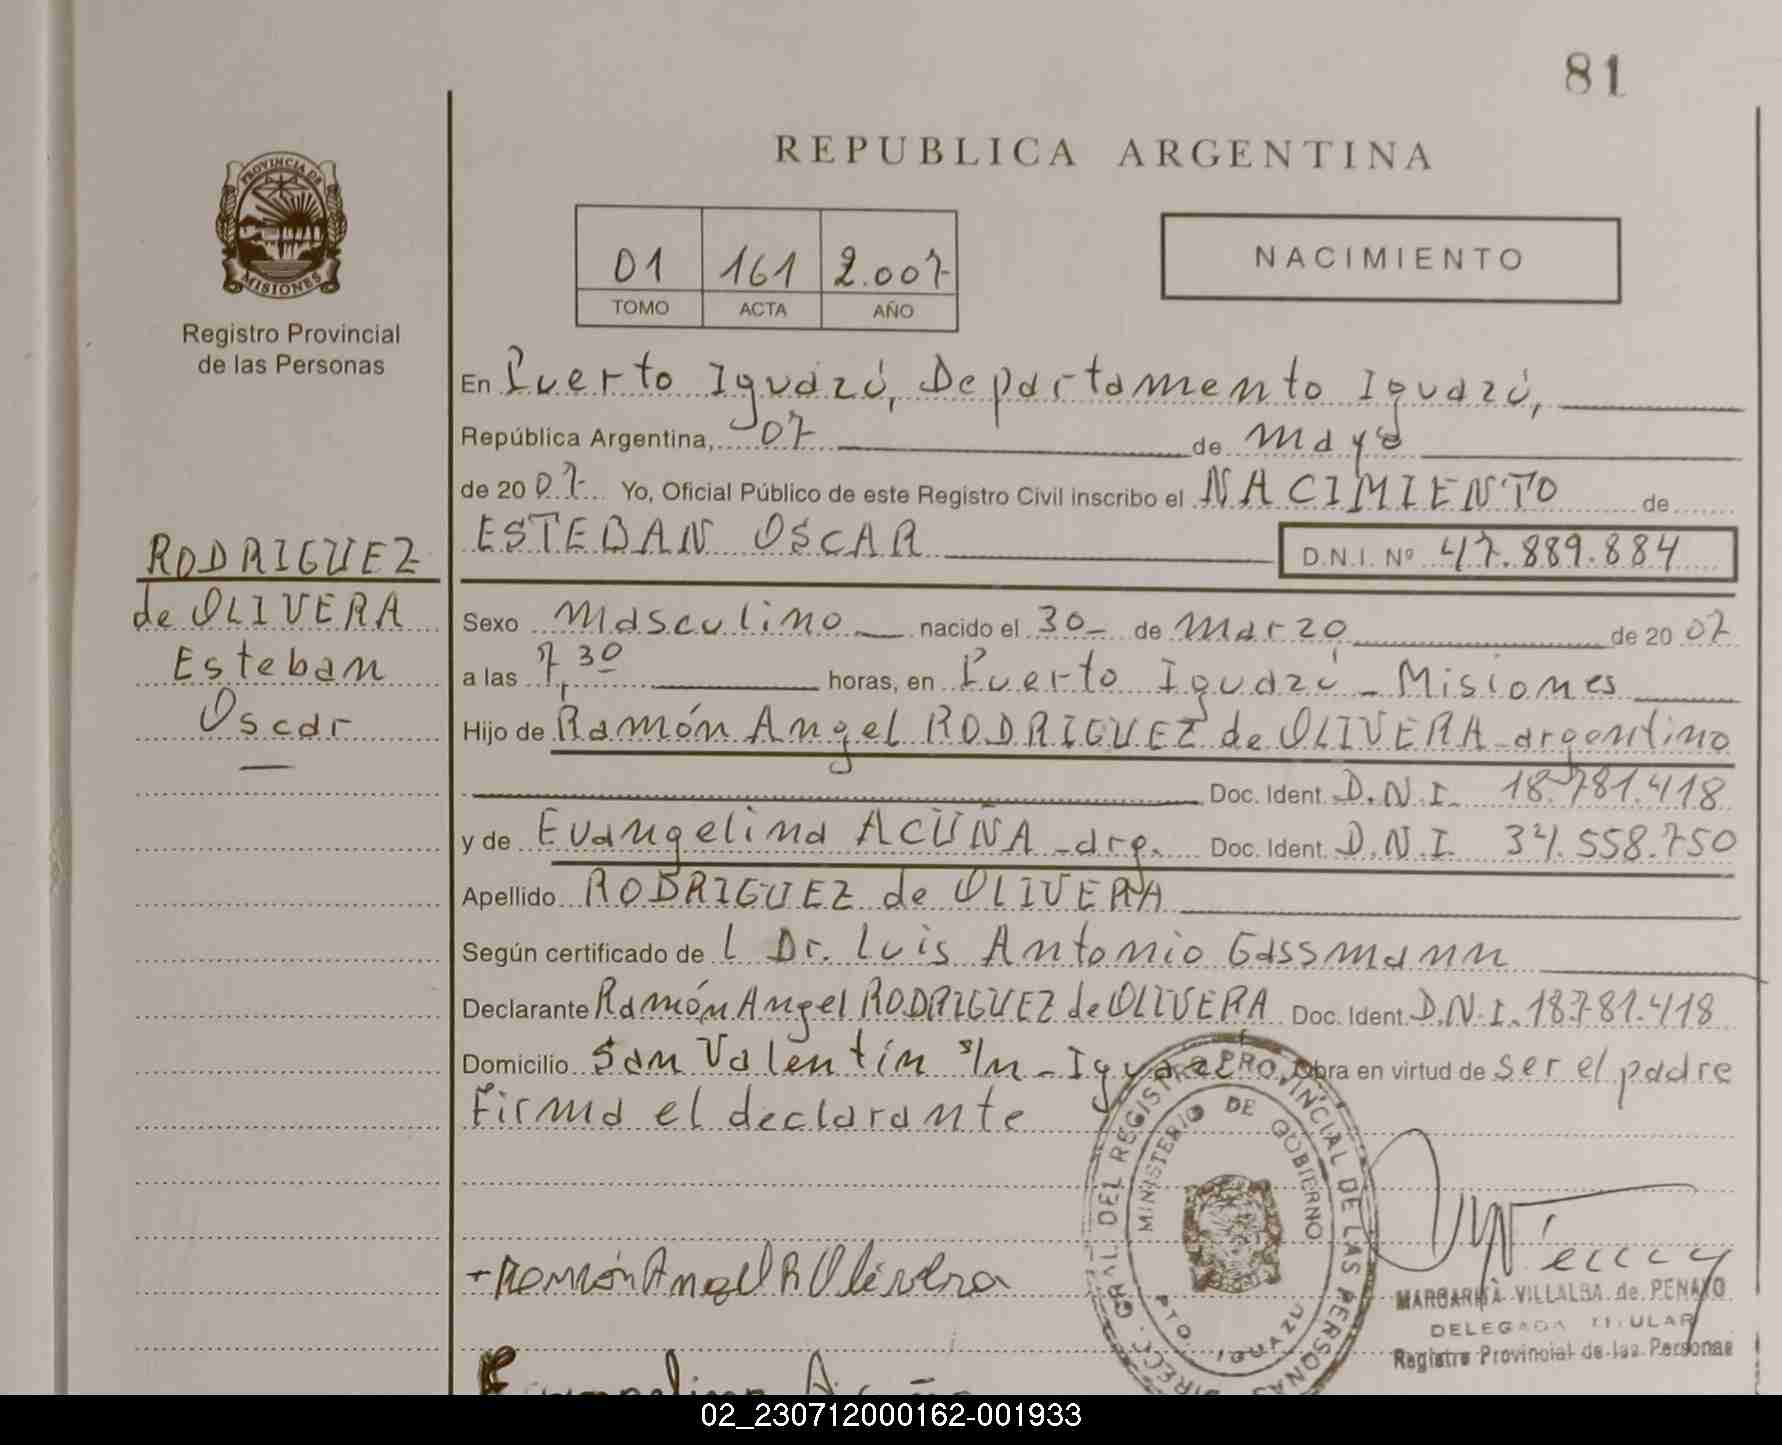 81
REPUBLICA ARGENTINA
PROVINCIA DE
MISIONES
Registro Provincial
de las Personas
01 161 2.007
TOMO ACTA AÑO
NACIMIENTO
En Puerto Iguazú, Departamento Iguazú,
República Argentina, 07 de mayo
de 20 07 Yo, Oficial Público de este Registro Civil inscribo el NACIMIENTO de
ESTEBAN OSCAR D.N.I. Nº 47.889.884
RODRIGUEZ
de OLIVERA
Esteban
Oscar
Sexo Masculino nacido el 30 de Marzo de 20 07
a las 7,30 horas, en Puerto Iguazú - Misiones
Hijo de Ramón Angel RODRIGUEZ de OLIVERA - argentino
Doc. Ident. D.N.I. 18.781.418
y de Evangelina ACUÑA - arg. Doc. Ident. D.N.I. 34.558.750
Apellido RODRIGUEZ de OLIVERA
Según certificado de l Dr. Luis Antonio Gassmann
Declarante Ramón Angel RODRIGUEZ de OLIVERA Doc. Ident. D.N.I. 18.781.418
Domicilio San Valentín s/n - Iguazú Obra en virtud de ser el padre
Firma el declarante
DIRECC. GRAL. DEL REGISTRO PROVINCIAL DE LAS PERSONAS
MINISTERIO DE GOBIERNO
PTO. IGUAZU
Ramón Angel R Olivera
MARGARITA VILLALBA de PENAYO
DELEGADA TITULAR
Registro Provincial de las Personas
Evangelina Acuña
02_230712000162-001933